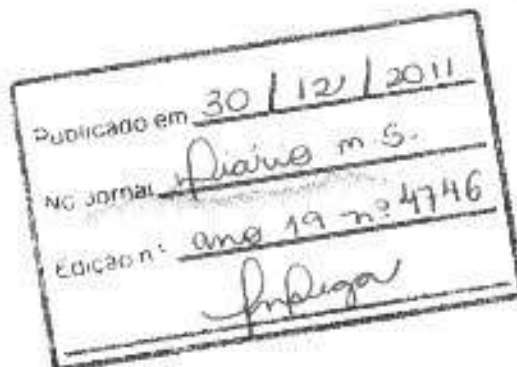 Publicado em 30/12/2011
No Jornal Diário m.s.
Edição n: ano 19 nº 4746